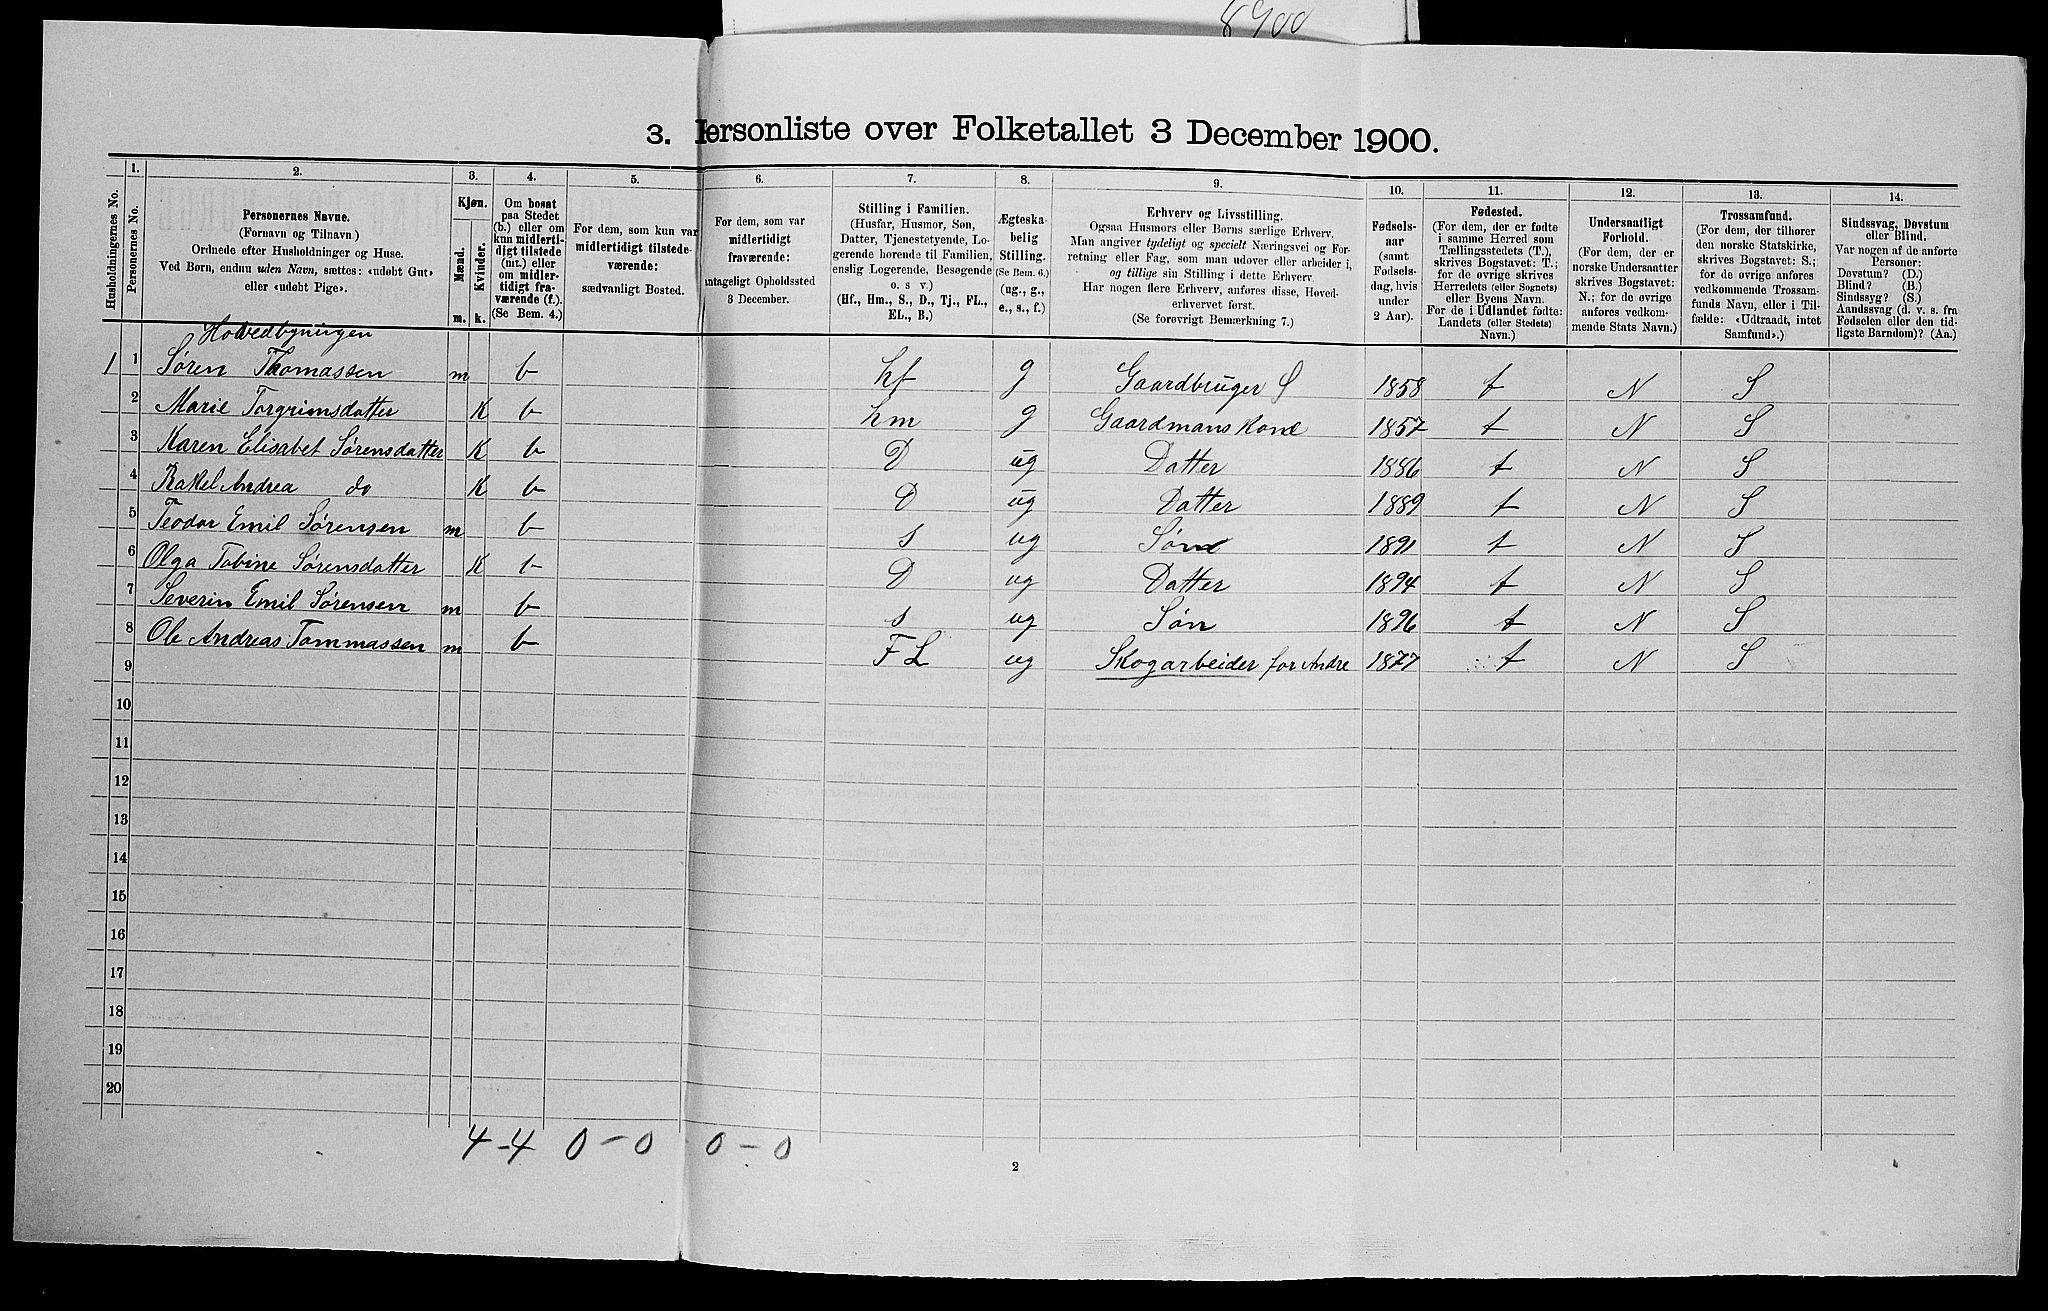 8900
3. Personliste over Folketallet 3 December 1900.
Husholdningernes No.
1.
Personernes No.
2.
Personernes Navne.
(Fornavn og Tilnavn)
Ordnede efter Husholdninger og Huse.
Ved Børn, endnu uden Navn, sættes: «udøbt Gut»
eller «udøbt Pige».
3.
Kjøn.
Mænd.
Kvinder.
m. k.
4.
Om bosat
paa Stedet
(b.) eller om
kun midlerti-
digt tilstede
(mt.) eller
om midler-
tidigt fra-
værende (f.).
(Se Bem. 4.)
5.
For dem, som kun var
midlertidigt tilstede-
værende:
sædvanligt Bosted.
6.
For dem, som var
midlertidigt
fraværende:
antageligt Opholdssted
3 December.
7.
Stilling i Familien.
(Husfar, Husmor, Søn,
Datter, Tjenestetyende, Lo-
gerende hørende til Familien,
enslig Logerende, Besøgende
o. s v.)
(Hf., Hm., S., D., Tj., FL.,
EL., B.)
8.
Ægteska-
belig
Stilling.
(Se Bem. 6.)
(ug., g.,
e., s., f.)
9.
Erhverv og Livsstilling.
Ogsaa Husmors eller Børns særlige Erhverv.
Man angiver tydeligt og specielt Næringsvei og For-
retning eller Fag, som man udøver eller arbeider i,
og tillige sin Stilling i dette Erhverv.
Har nogen flere Erhverv, anføres disse, Hoved-
erhvervet først.
(Se forøvrigt Bemærkning 7.)
10.
Fødsels-
aar
(samt
Fødsels-
dag, hvis
under
2 Aar).
11.
Fødested.
(For dem, der er fødte
i samme Herred som
Tællingsstedets (T.),
skrives Bogstavet: T.;
for de øvrige skrives
Herredets (eller Sognets)
eller Byens Navn.
For de i Udlandet fødte:
Landets (eller Stedets)
Navn.)
12.
Undersaatligt
Forhold.
(For dem, der er
norske Undersaatter
skrives Bogstavet:
N.; for de øvrige
anføres vedkom-
mende Stats Navn.)
13.
Trossamfund.
(For dem, der tilhører
den norske Statskirke,
skrives Bogstavet: S.;
for de øvrige anføres
vedkommende Trossam-
funds Navn, eller i Til-
fælde: «Udtraadt, intet
Samfund».)
14.
Sindssvag, Døvstum
eller Blind.
Var nogen af de anførte
Personer:
Døvstum? (D.)
Blind? (B.)
Sindssyg? (S.)
Aandssvag (d. v. s. fra
Fødselen eller den tid-
ligste Barndom)? (Aa.)
Hovedbyningen
1 1 Søren Thomassen m b hf g Gaardbruger S 1858 t N S
2 Marie Torgrimsdatter K b hm g Gaardmanskone 1857 t N S
3 Karen Elisabet Sørensdatter K b D ug Datter 1886 t N S
4 Rakel Andrea do K b D ug Datter 1889 t N S
5 Teodor Emil Sørensen m b s ug Søn 1891 t N S
6 Olga Tobine Sørensdatter K b D ug Datter 1894 t N S
7 Severin Emil Sørensen m b s ug Søn 1896 t N S
8 Ole Andreas Tommassen m b F L ug Skogarbeider for Andre 1877 t N S
9
10
11
12
13
14
15
16
17
18
19
20
4 - 4 0 - 0 0 - 0
2